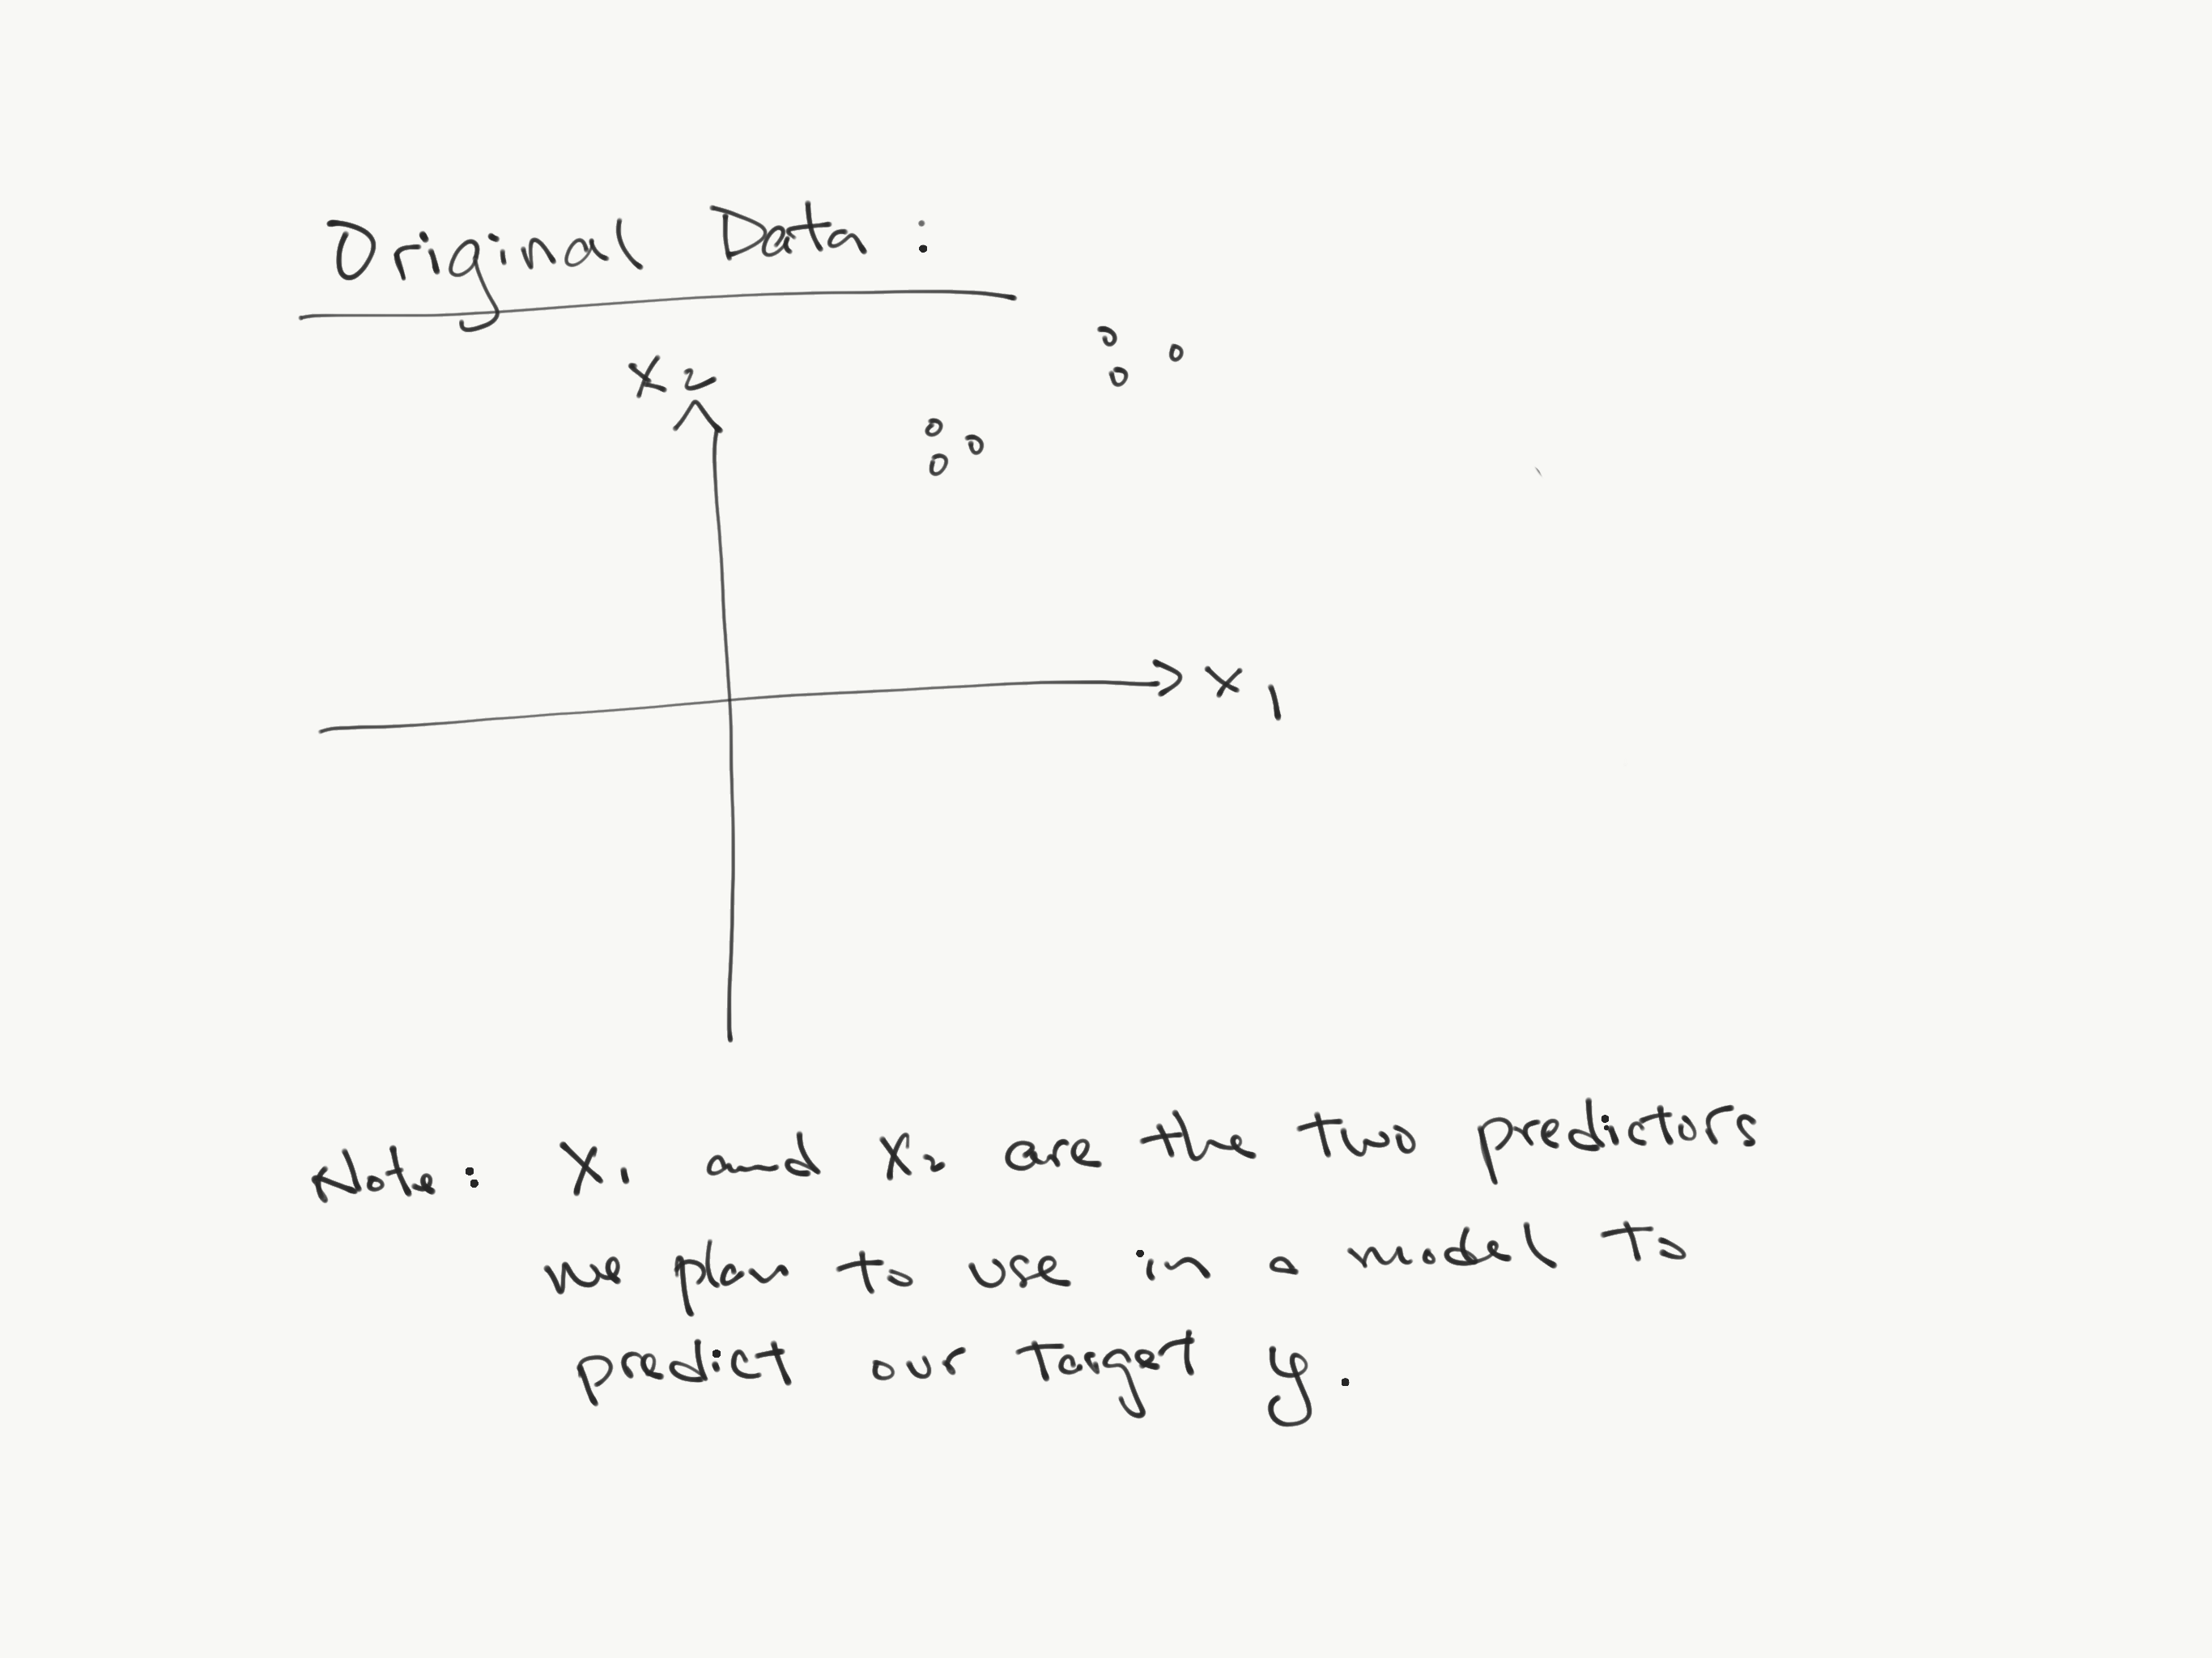 Original Data :
x2
x1
Note: X1 and X2 are the two predictors
we plan to use in a model to
predict our target y.